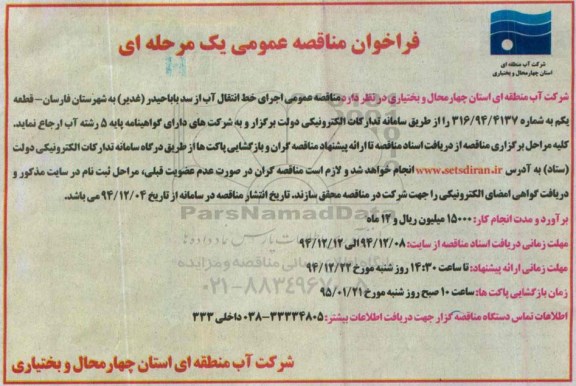 شرکت آب منطقه ای
استان چهارمحال و بختیاری
فراخوان مناقصه عمومی یک مرحله ای
شرکت آب منطقه ای استان چهارمحال و بختیاری در نظر دارد مناقصه عمومی اجرای خط انتقال آب از سد باباحیدر (غدیر) به شهرستان فارسان- قطعه
یکم به شماره ۳۱۶/۹۴/۴۱۳۷ را از طریق سامانه تدارکات الکترونیکی دولت برگزار و به شرکت های دارای گواهینامه پایه ۵ رشته آب ارجاع نماید.
کلیه مراحل برگزاری مناقصه از دریافت اسناد مناقصه تا ارائه پیشنهاد مناقصه گران و بازگشایی پاکت ها از طریق درگاه سامانه تدارکات الکترونیکی دولت
(ستاد) به آدرس www.setsdiran.ir انجام خواهد شد و لازم است مناقصه گران در صورت عدم عضویت قبلی، مراحل ثبت نام در سایت مذکور و
دریافت گواهی امضای الکترونیکی را جهت شرکت در مناقصه محقق سازند. تاریخ انتشار مناقصه در سامانه از تاریخ ۹۴/۱۲/۰۴ می باشد.
برآورد و مدت انجام کار: ۱۵۰۰۰ میلیون ریال و ۱۲ ماه
مهلت زمانی دریافت اسناد مناقصه از سایت: ۹۴/۱۲/۰۸ الی ۹۴/۱۲/۱۲
مهلت زمانی ارائه پیشنهاد: تا ساعت ۱۴:۳۰ روز شنبه مورخ ۹۴/۱۲/۲۲
زمان بازگشایی پاکت ها: ساعت ۱۰ صبح روز شنبه مورخ ۹۵/۰۱/۲۱
اطلاعات تماس دستگاه مناقصه گزار جهت دریافت اطلاعات بیشتر: ۳۳۳۳۴۸۰۵-۰۳۸ داخلی ۳۳۳
شرکت آب منطقه ای استان چهارمحال و بختیاری
ParsNamadData
پایگاه اطلاع رسانی مناقصه و مزایده
۰۲۱-۸۸۳۴۹۶۷۰-۵